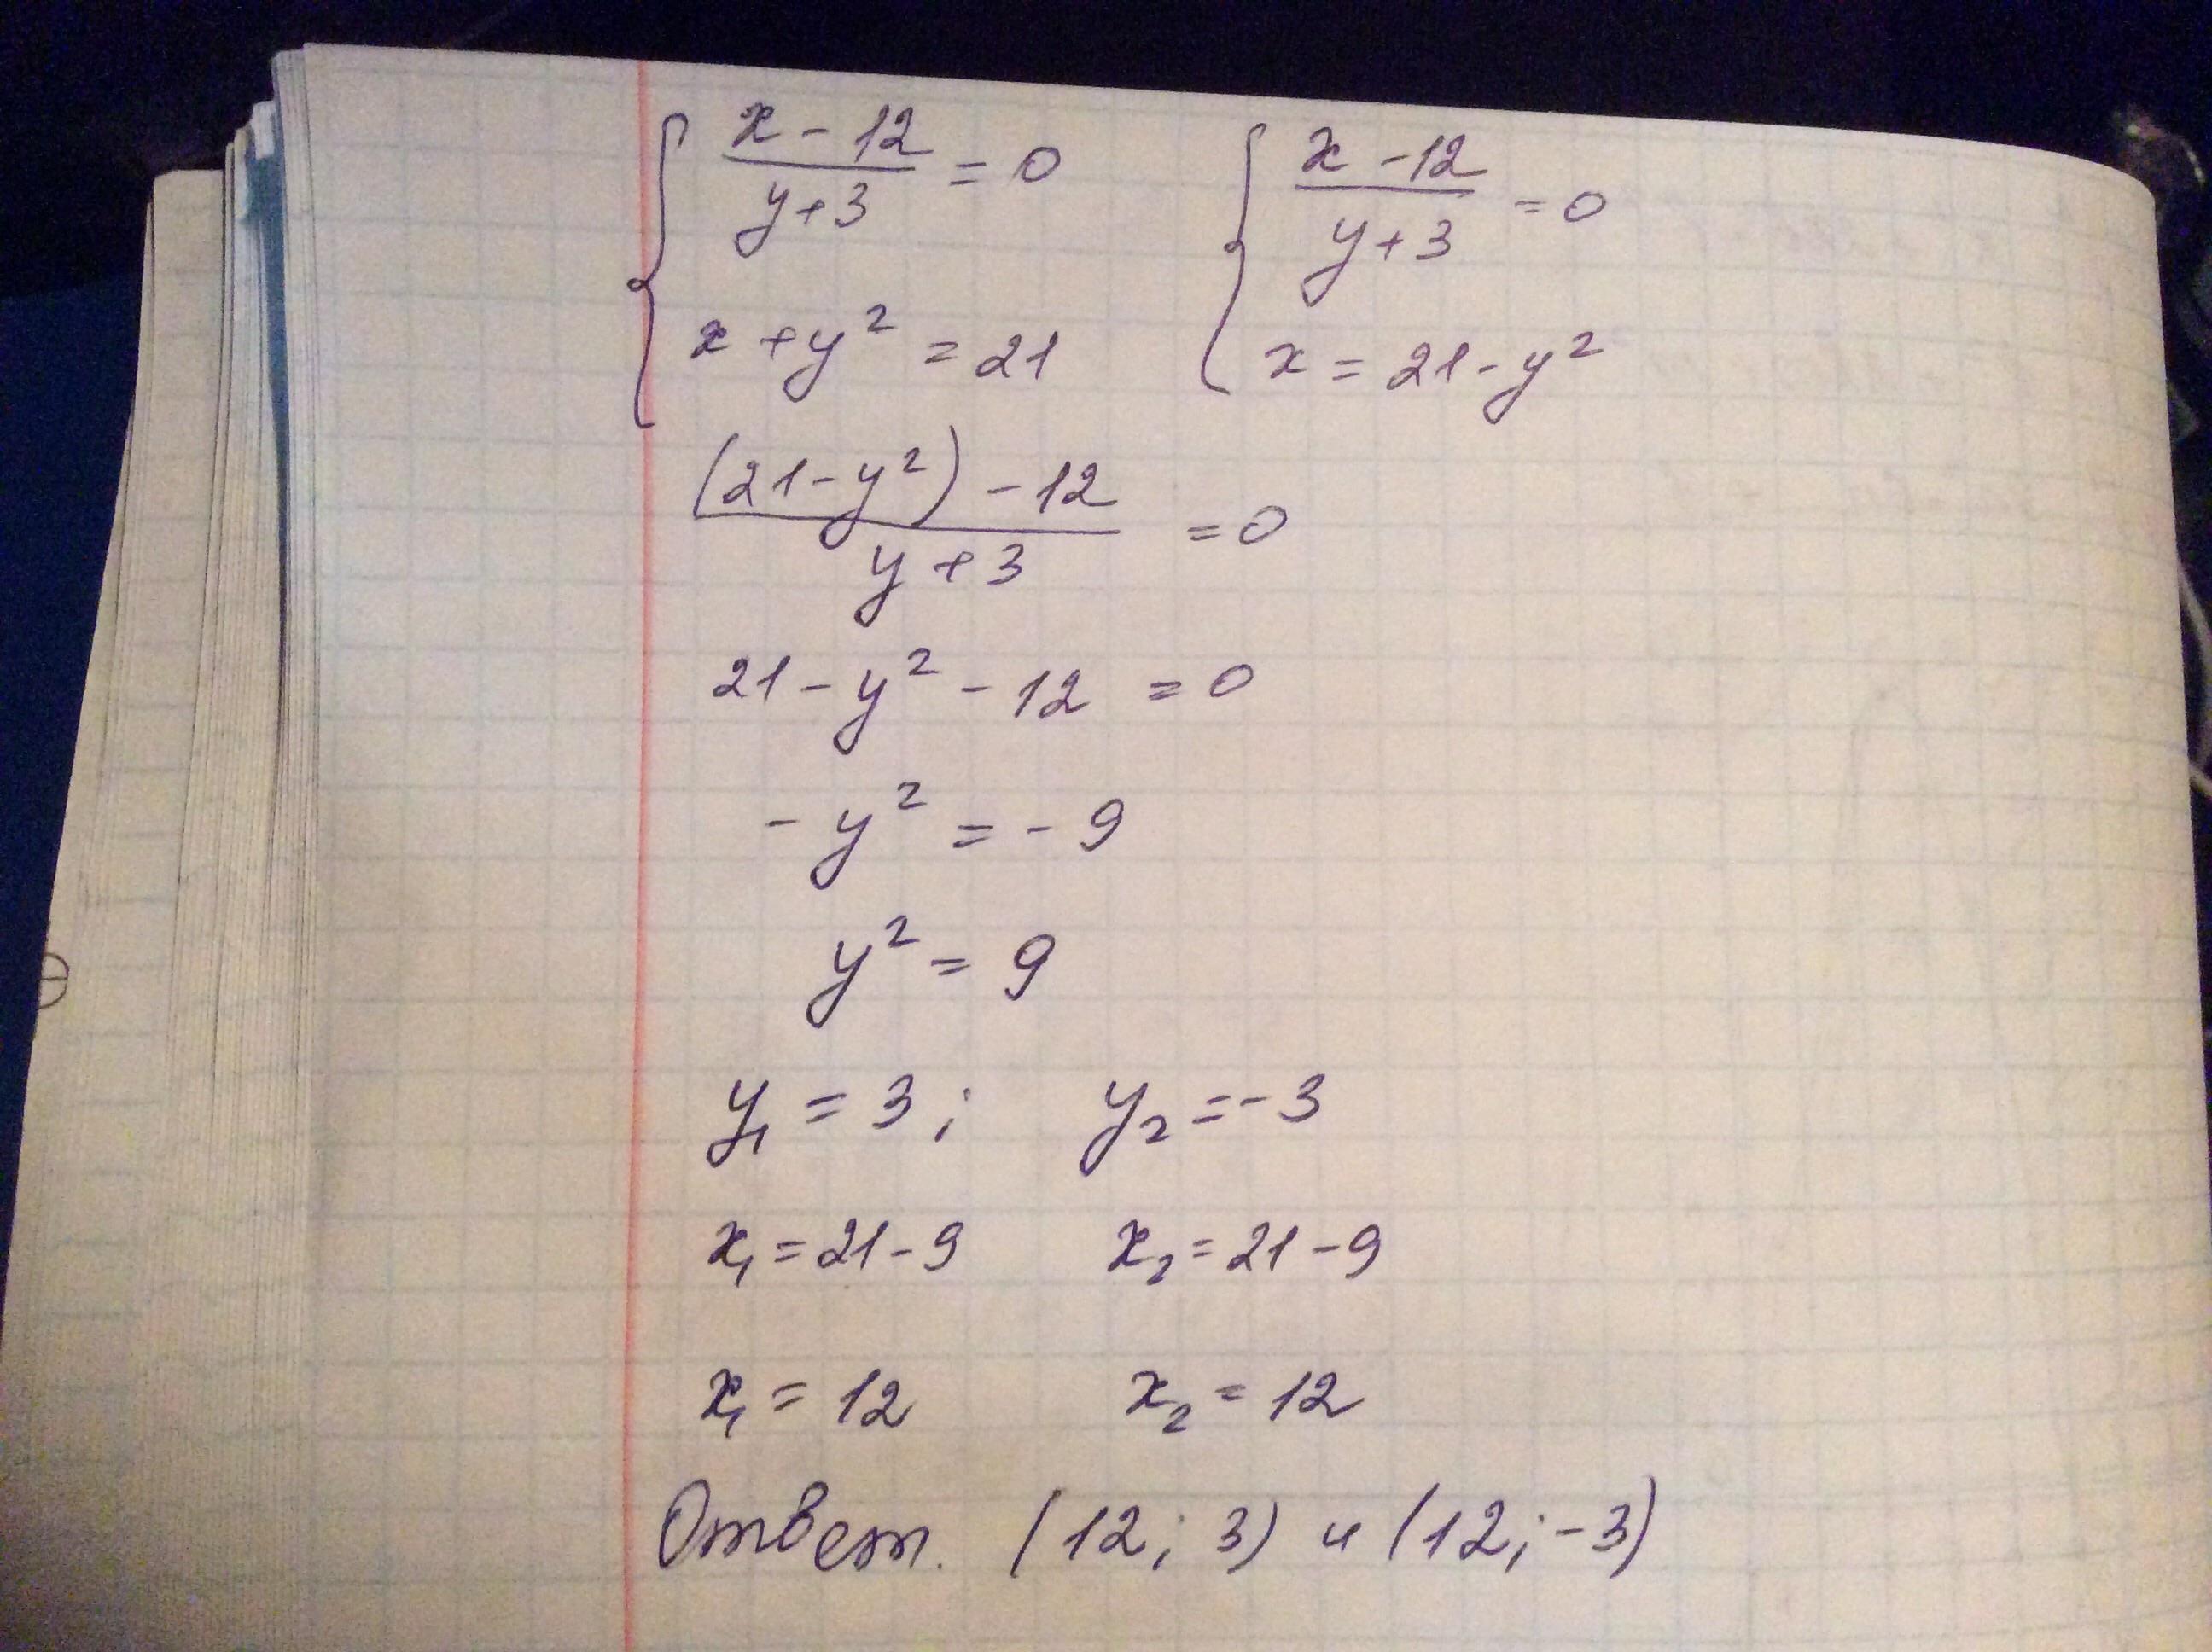 { (x - 12)/(y + 3) = 0   { (x - 12)/(y + 3) = 0
x + y² = 21   x = 21 - y²
((21 - y²) - 12)/(y + 3) = 0
21 - y² - 12 = 0
- y² = - 9
y² = 9
y₁ = 3; y₂ = - 3
x₁ = 21 - 9 x₂ = 21 - 9
x₁ = 12 x₂ = 12
Ответ. (12; 3) и (12; -3)